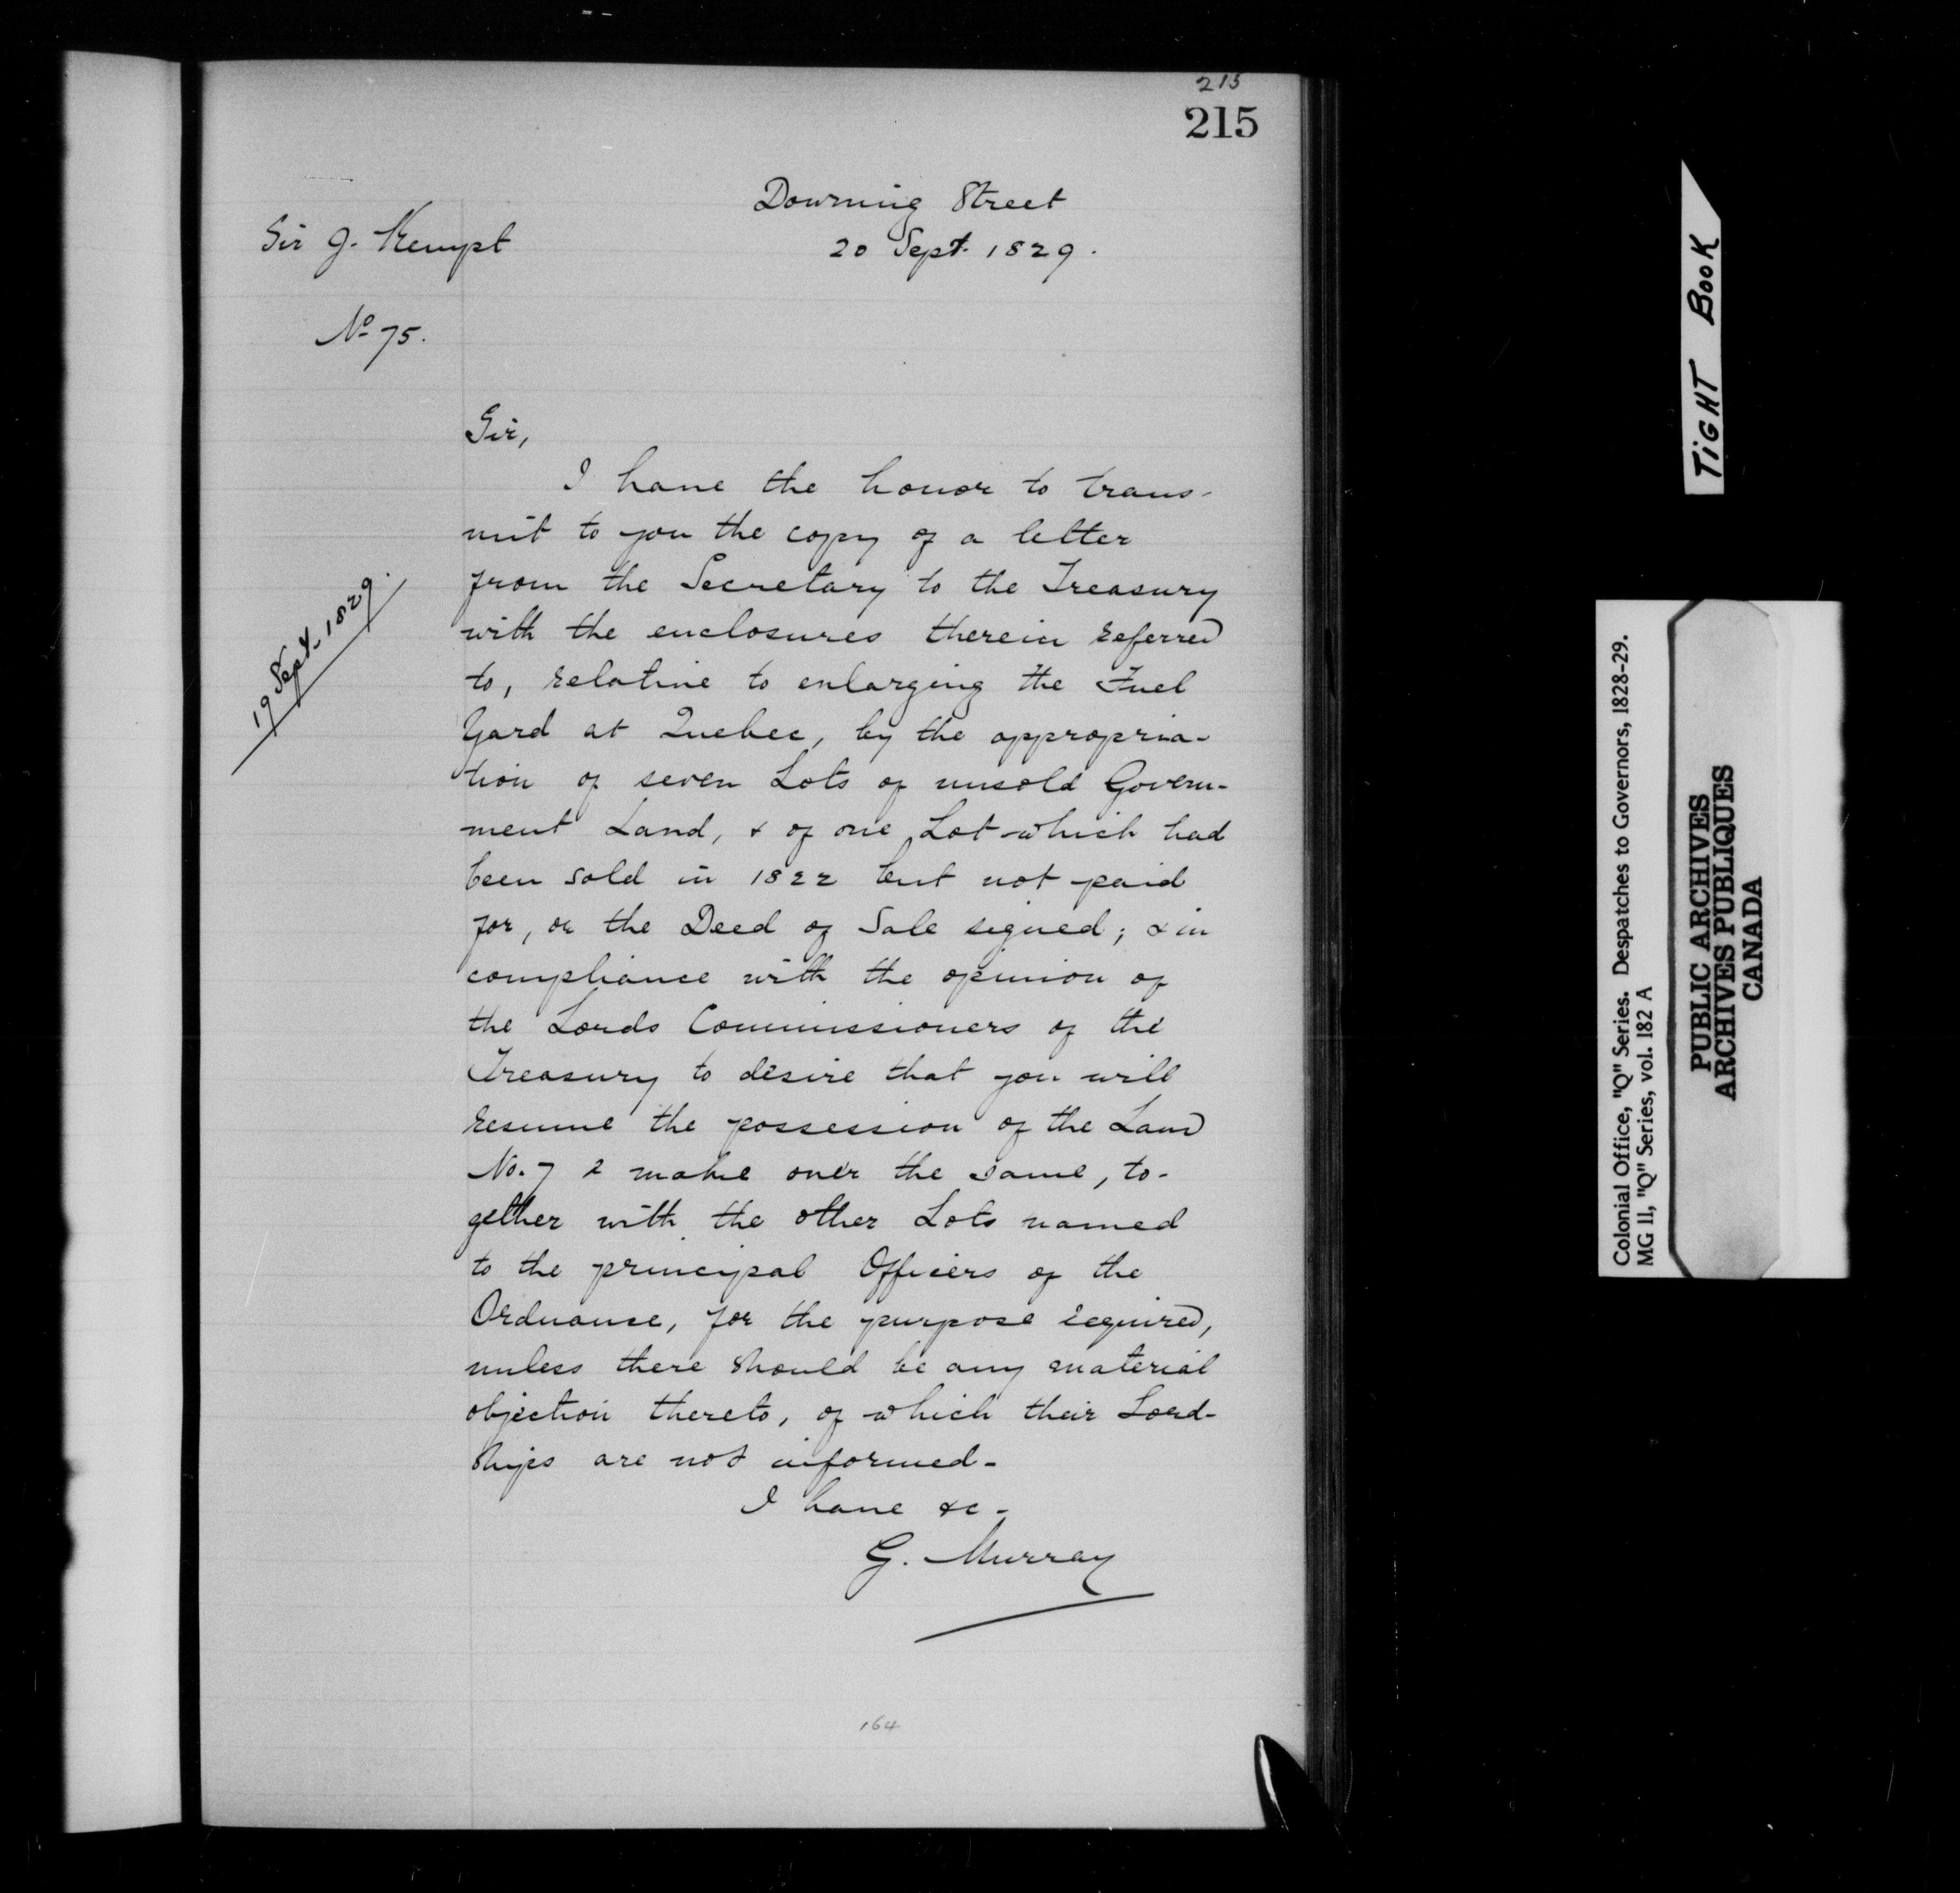 215
215
Downing Street
20 Sept. 1829.
Sir J. Kempt
No 75.
Sir,
I have the honor to trans-
mit to you the copy of a letter
from the Secretary to the Treasury
19 Sept. 1829.
with the enclosures therein referred
to, relative to enlarging the Fuel
Yard at Quebec, by the appropria-
tion of seven Lots of unsold Govern-
ment Land, & of one Lot which had
been sold in 1822 but not paid
for, or the Deed of Sale signed; & in
compliance with the opinion of
the Lords Commissioners of the
Treasury to desire that you will
resume the possession of the Land
No. 7 & make over the same, to-
gether with the other Lots named
to the principal Officers of the
Ordnance, for the purpose required,
unless there should be any material
objection thereto, of which their Lord-
ships are not informed-
I have &c-
G. Murray
164
TIGHT BOOK
Colonial Office, "Q" Series. Despatches to Governors, 1828-29.
MG 11, "Q" Series, vol. 182 A
PUBLIC ARCHIVES
ARCHIVES PUBLIQUES
CANADA